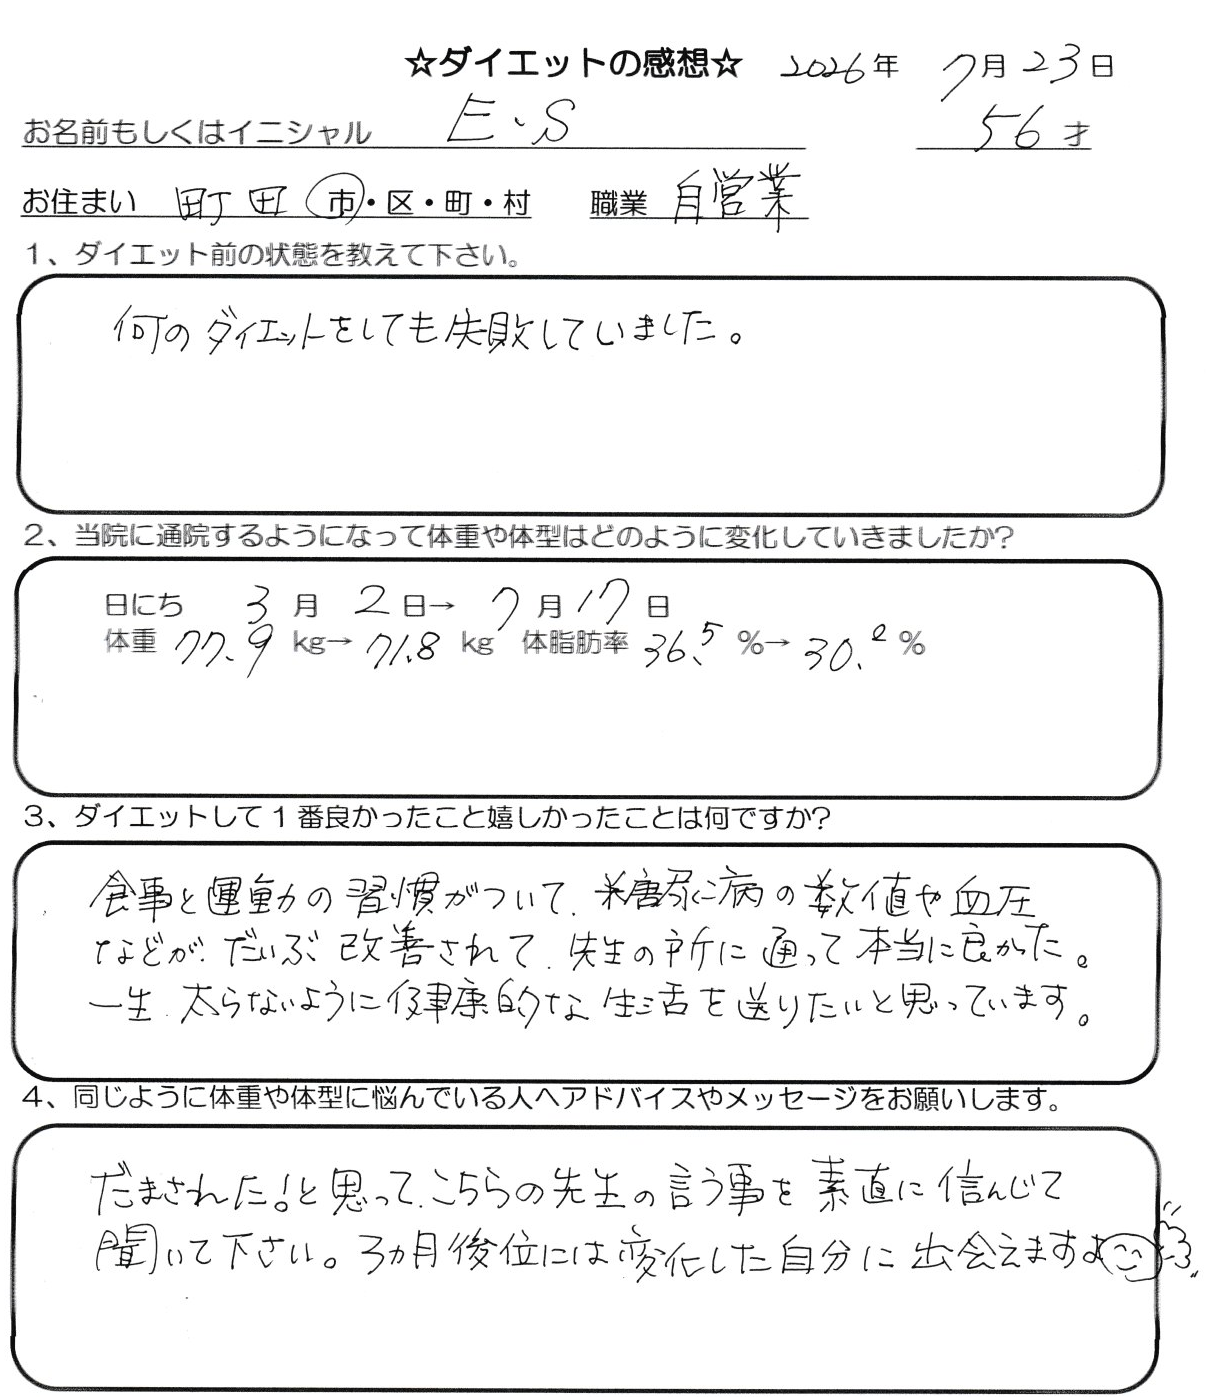 ☆ダイエットの感想☆ 2026年 7月23日
お名前もしくはイニシャル E・S 56才
お住まい 町田 市・区・町・村 職業 自営業
1、ダイエット前の状態を教えて下さい。
何のダイエットをしても失敗していました。
2、当院に通院するようになって体重や体型はどのように変化していきましたか?
日にち 3月 2日→ 7月17日
体重 77.9 kg→ 71.8 kg 体脂肪率 36.5 %→ 30.2 %
3、ダイエットして1番良かったこと嬉しかったことは何ですか?
食事と運動の習慣がついて、糖尿病の数値や血圧
などが、だいぶ改善されて、先生の所に通って本当に良かった。
一生、太らないように健康的な生活を送りたいと思っています。
4、同じように体重や体型に悩んでいる人へアドバイスやメッセージをお願いします。
だまされた!と思って、こちらの先生の言う事を素直に信んじて
聞いて下さい。3ヵ月後位には変化した自分に出会えますよ